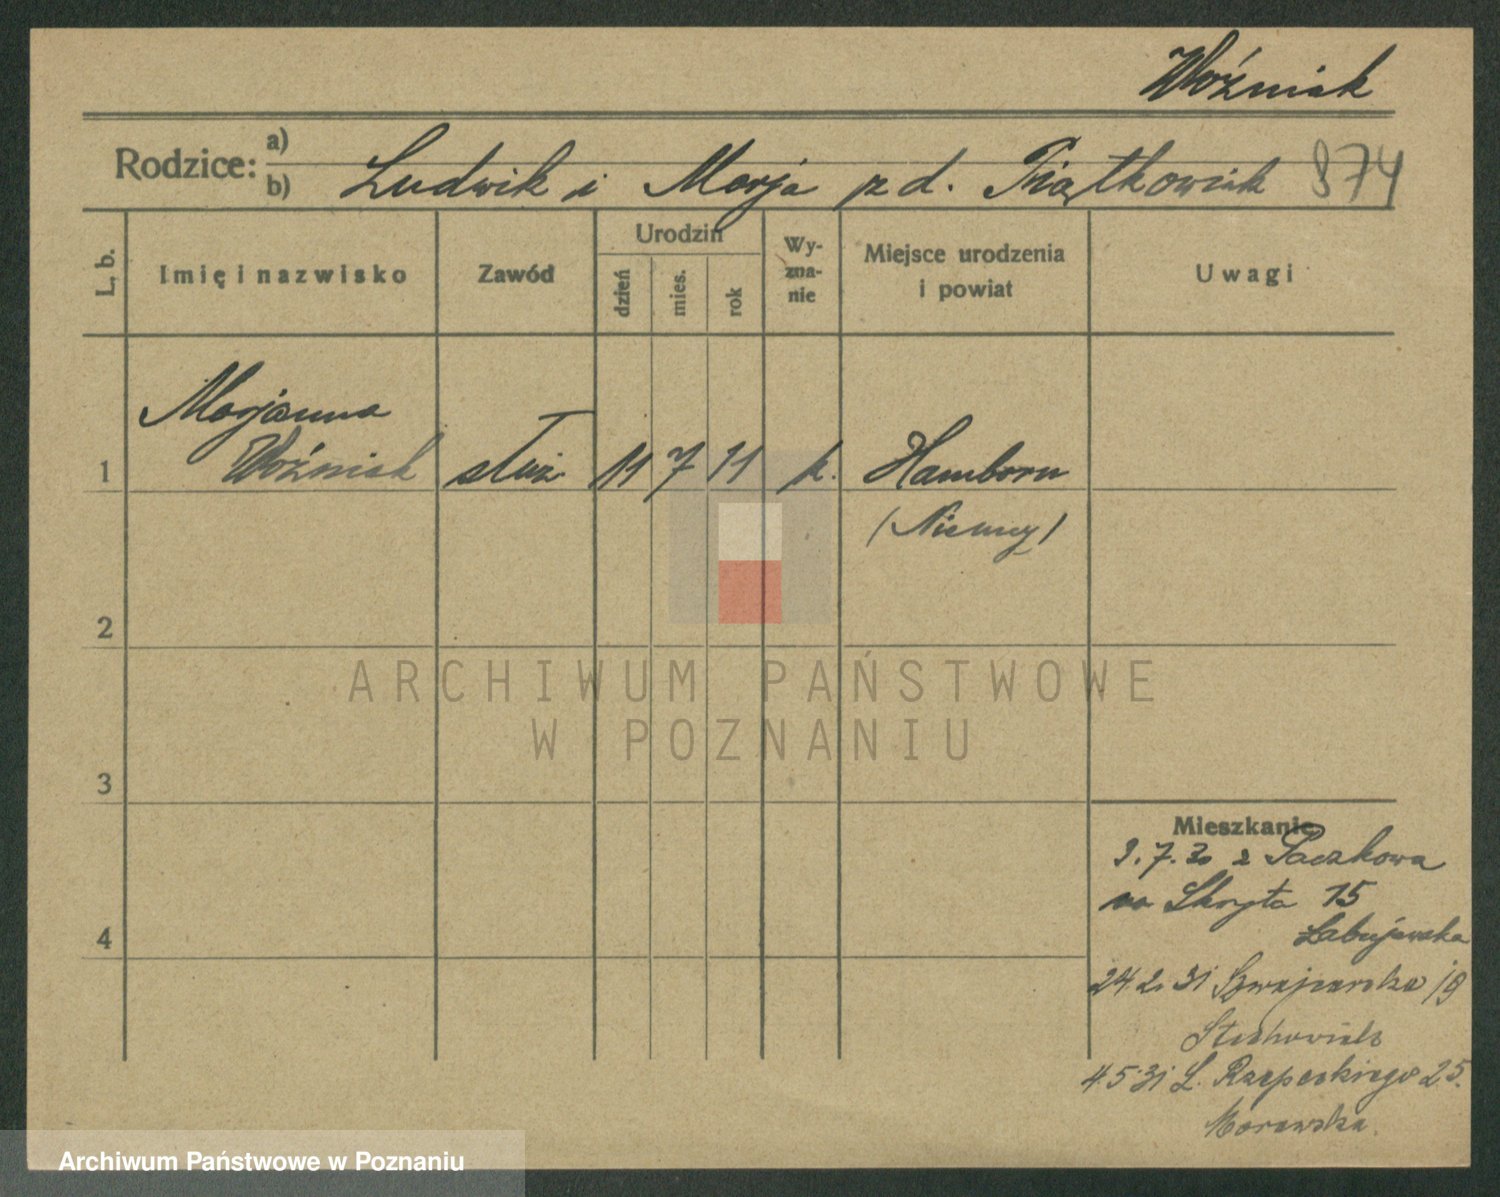 Woźniak
Rodzice: a)
b) Ludwik i Marja z d. Piątkowiak 874
L. b. Imię i nazwisko Zawód Urodzin dzień mies. rok Wy-zna-nie Miejsce urodzenia i powiat Uwagi
Marjanna
1 Woźniak służ. 11 7 11 k. Hamborn
(Niemcy)
2
3
4
Mieszkanie
9.7.30 z Paczkowa
na Skryta 15
24.2.31 Szwajcarska 19
Stachowiak
4.5.31 L. Rzepeckiego 25.
Morawska.
ARCHIWUM PAŃSTWOWE
W POZNANIU
Archiwum Państwowe w Poznaniu